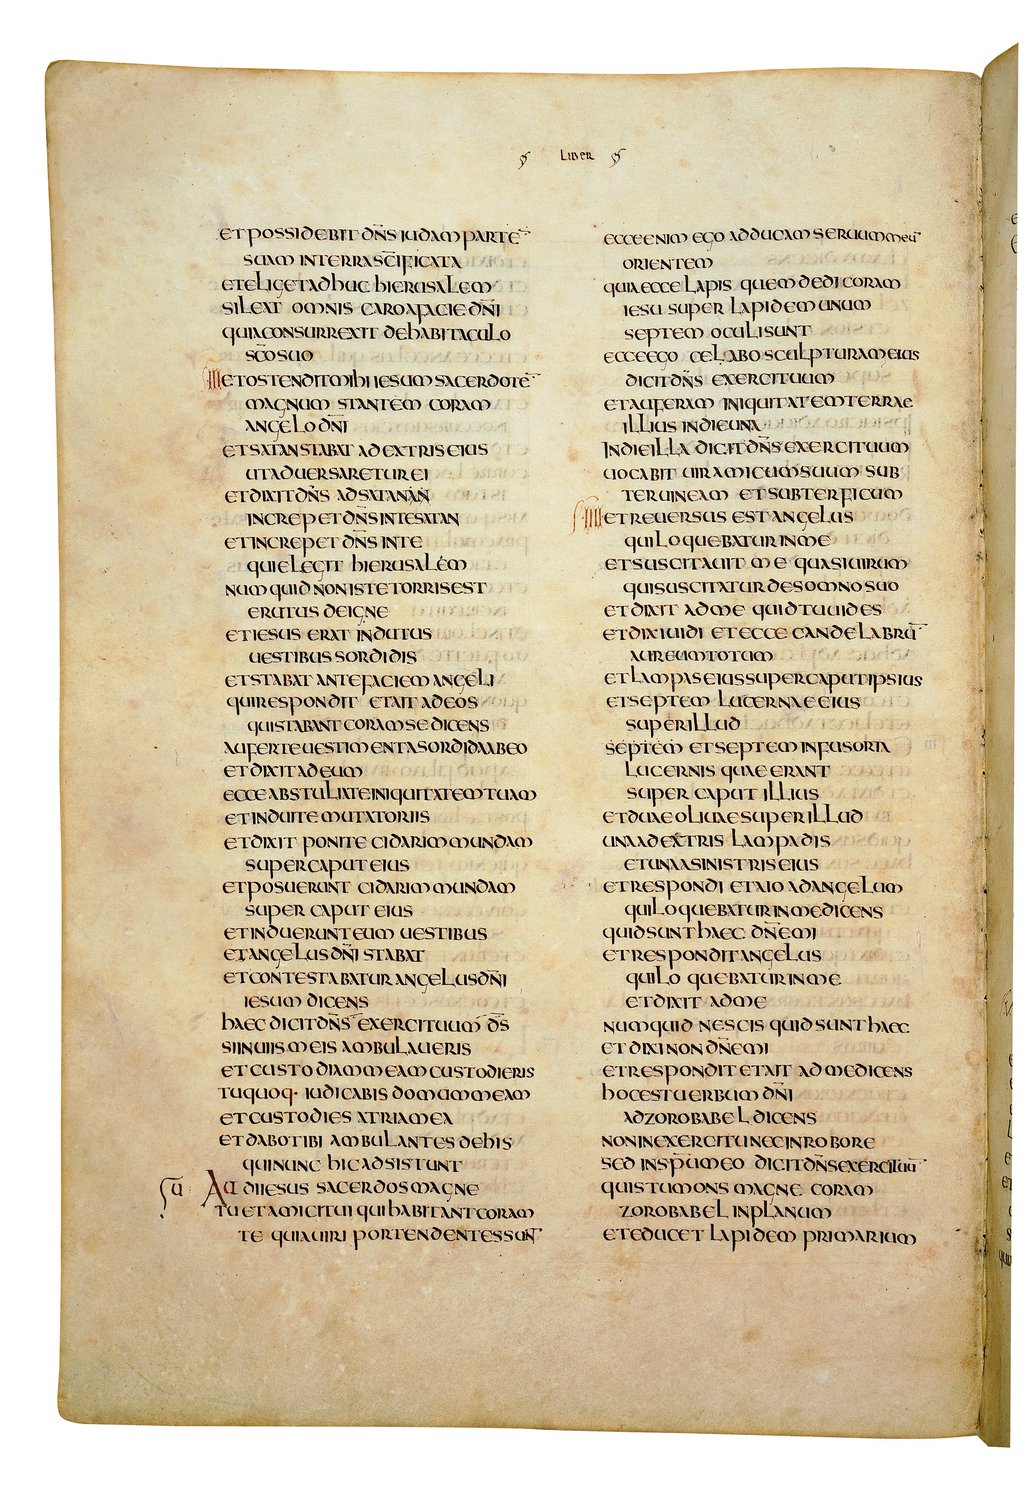 LIBER
ET POSSIDEBIT DN̄S IUDAM PARTĒ
SUAM IN TERRA SC̄IFICATA
ET ELIGET ADHUC HIERUSALEM
SILEAT OMNIS CARO A FACIE DN̄I
QUIA CONSURREXIT DE HABITACULO
SC̄O SUO
III ET OSTENDIT MIHI IESUM SACERDOTĒ
MAGNUM STANTEM CORAM
ANGELO DN̄I
ET SATAN STABAT A DEXTRIS EIUS
UT ADUERSARETUR EI
ET DIXIT DN̄S AD SATANAN
INCREPET DN̄S IN TE SATAN
ET INCREPET DN̄S IN TE
QUI ELEGIT HIERUSALEM
NUMQUID NON ISTE TORRIS EST
ERUTUS DE IGNE
ET IESUS ERAT INDUTUS
UESTIBUS SORDIDIS
ET STABAT ANTE FACIEM ANGELI
QUI RESPONDIT ET AIT AD EOS
QUI STABANT CORAM SE DICENS
AUFERTE UESTIMENTA SORDIDA AB EO
ET DIXIT AD EUM
ECCE ABSTULI A TE INIQUITATEM TUAM
ET INDUI TE MUTATORIIS
ET DIXIT PONITE CIDARIM MUNDAM
SUPER CAPUT EIUS
ET POSUERUNT CIDARIM MUNDAM
SUPER CAPUT EIUS
ET INDUERUNT EUM UESTIBUS
ET ANGELUS DN̄I STABAT
ET CONTESTABATUR ANGELUS DN̄I
IESUM DICENS
HAEC DICIT DN̄S EXERCITUUM D̄S
SI IN UIIS MEIS AMBULAUERIS
ET CUSTODIAM MEAM CUSTODIERIS
TU QUOQ· IUDICABIS DOMUM MEAM
ET CUSTODIES ATRIA MEA
ET DABO TIBI AMBULANTES DE HIS
QUI NUNC HIC ADSISTUNT
AUDI IESUS SACERDOS MAGNE
TU ET AMICI TUI QUI HABITANT CORAM
TE QUIA UIRI PORTENDENTES SUN̄T
ECCE ENIM EGO ADDUCAM SERUUM MEŪ
ORIENTEM
QUIA ECCE LAPIS QUEM DEDI CORAM
IESU SUPER LAPIDEM UNUM
SEPTEM OCULI SUNT
ECCE EGO CELABO SCULPTURAM EIUS
DICIT DN̄S EXERCITUUM
ET AUFERAM INIQUITATEM TERRAE
ILLIUS IN DIE UNA
IN DIE ILLA DICIT DN̄S EXERCITUUM
UOCABIT UIR AMICUM SUUM SUB
TER UINEAM ET SUBTER FICUM
IIII ET REUERSUS EST ANGELUS
QUI LOQUEBATUR IN ME
ET SUSCITAUIT ME QUASI UIRUM
QUI SUSCITATUR DE SOMNO SUO
ET DIXIT AD ME QUID TU UIDES
ET DIXI UIDI ET ECCE CANDELABRŪ
AUREUM TOTUM
ET LAMPAS EIUS SUPER CAPUT IPSIUS
ET SEPTEM LUCERNAE EIUS
SUPER ILLUD
SEPTEM ET SEPTEM INFUSORIA
LUCERNIS QUAE ERANT
SUPER CAPUT ILLIUS
ET DUAE OLIUAE SUPER ILLUD
UNA A DEXTRIS LAMPADIS
ET UNA A SINISTRIS EIUS
ET RESPONDI ET AIO AD ANGELUM
QUI LOQUEBATUR IN ME DICENS
QUID SUNT HAEC DN̄E MI
ET RESPONDIT ANGELUS
QUI LOQUEBATUR IN ME
ET DIXIT AD ME
NUMQUID NESCIS QUID SUNT HAEC
ET DIXI NON DN̄E MI
ET RESPONDIT ET AIT AD ME DICENS
HOC EST UERBUM DN̄I
AD ZOROBABEL DICENS
NON IN EXERCITU NEC IN ROBORE
SED IN SPŪ MEO DICIT DN̄S EXERCITUŪ
QUIS TU MONS MAGNE CORAM
ZOROBABEL IN PLANUM
ET EDUCET LAPIDEM PRIMARIUM